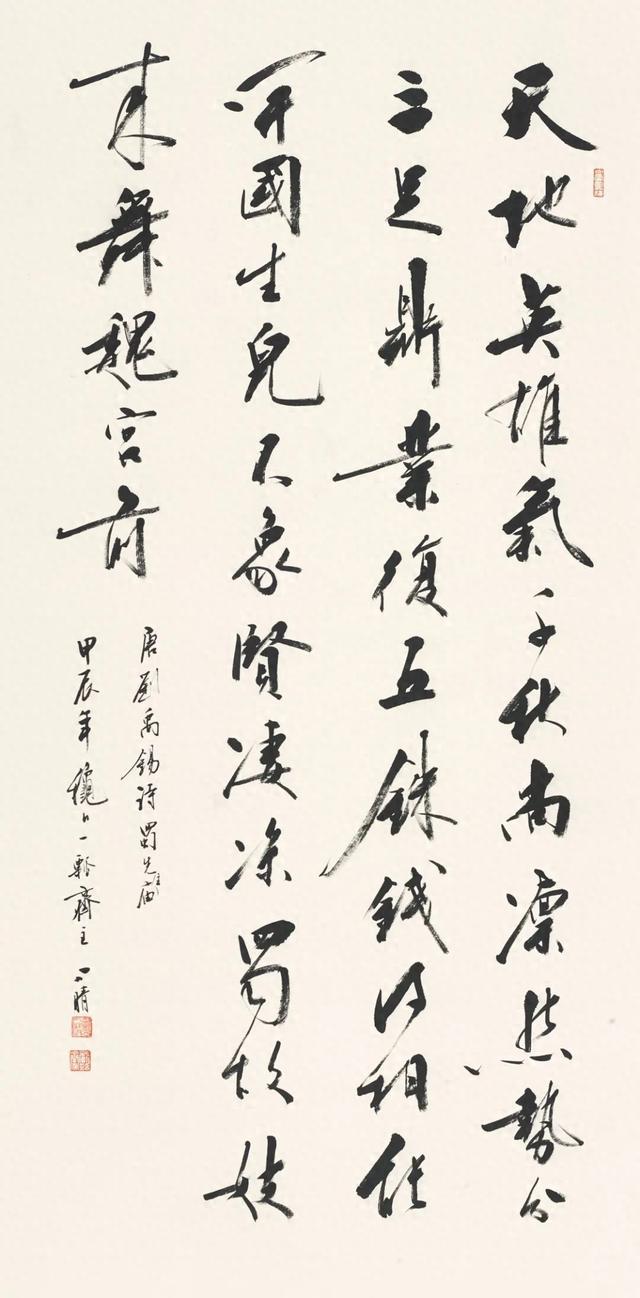 天地英雄氣千秋尚凜然勢分
三足鼎業復五銖錢得相能
開國生兒不象賢淒涼蜀故妓
來舞魏宮前
唐劉禹錫詩蜀先主廟
甲辰年 一 齋主 一晴